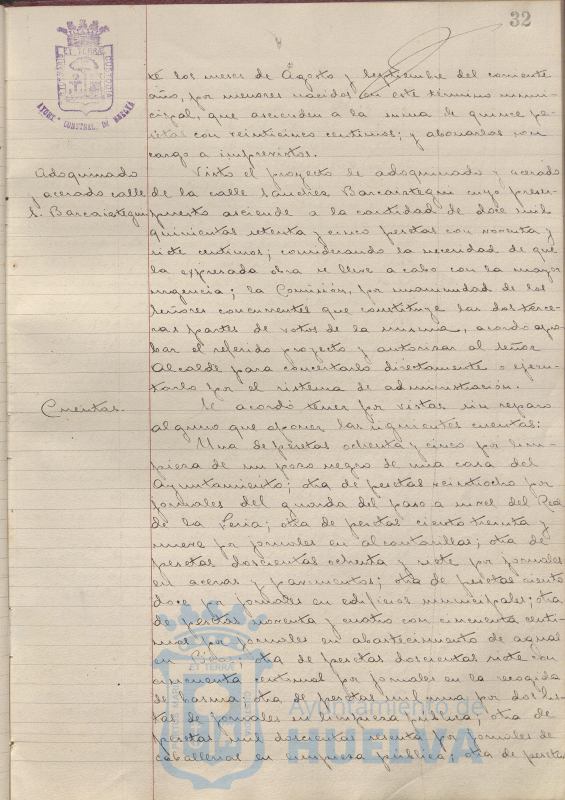 32
AYUNT. CONSTNAL. DE HUELVA
te los meses de Agosto y Septiembre del corriente
año, por menores nacidos en este término muni-
cipal, que ascienden a la suma de quince pe-
setas con veinticinco centimos; y abonarlos con
cargo a imprevistos.
Adoquinado
y acerado calle
S. Barcaiztegui
Visto el proyecto de adoquinado y acerado
de la calle Sánchez Barcaiztegui cuyo presu-
puesto asciende a la cantidad de doce mil
quinientas setenta y cinco pesetas con noventa y
siete centimos; considerando la necesidad de que
la expresada obra se lleve a cabo con la mayor
urgencia; la Comisión, por unanimidad de los
señores concurrentes que constituye las dos terce-
ras partes de votos de la misma, acordó apro-
bar el referido proyecto y autorizar al señor
Alcalde para concertarlo directamente o ejecu-
tarlo por el sistema de administración.
Cuentas.
Se acordó tener por vistas sin reparo
alguno que oponer las siguientes cuentas:
Una de pesetas ochenta y cinco por lim-
pieza de un pozo negro de una casa del
Ayuntamiento; otra de pesetas veintiocho por
jornales del guarda del paso a nivel del Real
de la Feria; otra de pesetas ciento treinta y
nueve por jornales en alcantarillas; otra de
pesetas doscientas ochenta y siete por jornales
en aceras y pavimentos; otra de pesetas ciento
doce por jornales en edificios municipales; otra
de pesetas noventa y cuatro con cincuenta centi-
mos por jornales en abastecimiento de aguas
en ; otra de pesetas doscientas siete con
cincuenta centimos por jornales en la recogida
de basura; otra de pesetas mil una por dos lis-
tas de jornales en limpieza pública; otra de
pesetas mil doscientas sesenta por jornales de
caballerías en limpieza pública; otra de pesetas
Ayuntamiento de
HUELVA